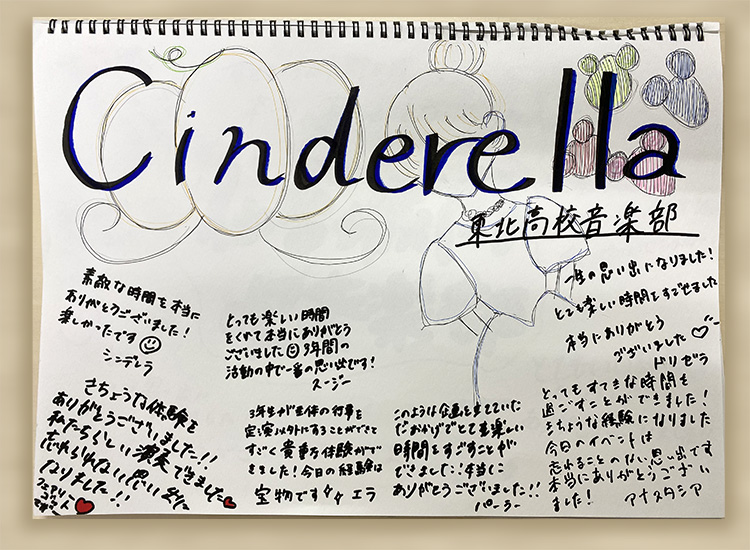 Cinderella
東北高校音楽部
素敵な時間を本当に
ありがとうございました!
楽しかったです
シンデレラ
とっても楽しい時間
をくださて本当にありがとう
ございました 3年間の
活動の中で一番の思い出です!
スージー
一生の思い出になりました!
とても楽しい時間をすごせました
本当にありがとう
ございました
ドリゼラ
きちょうな体験を
ありがとうございました!!
私たちらしい演奏できました
忘れられない思い出に
なりました!!
3年生が主体の行事を
定演以外にすることができて
すごく貴重な体験がで
きました!今日の経験は
宝物です エラ
このような企画をまていた
だいたおかげでとても楽しい
時間をすごすことが
できました!本当に
ありがとうございました!!
パーラー
とってもすてきな時間を
過ごすことができました!
きちょうな経験になりました
今日のイベントは
忘れることのない思い出です
本当にありがとうござい
ました! アナスタシア